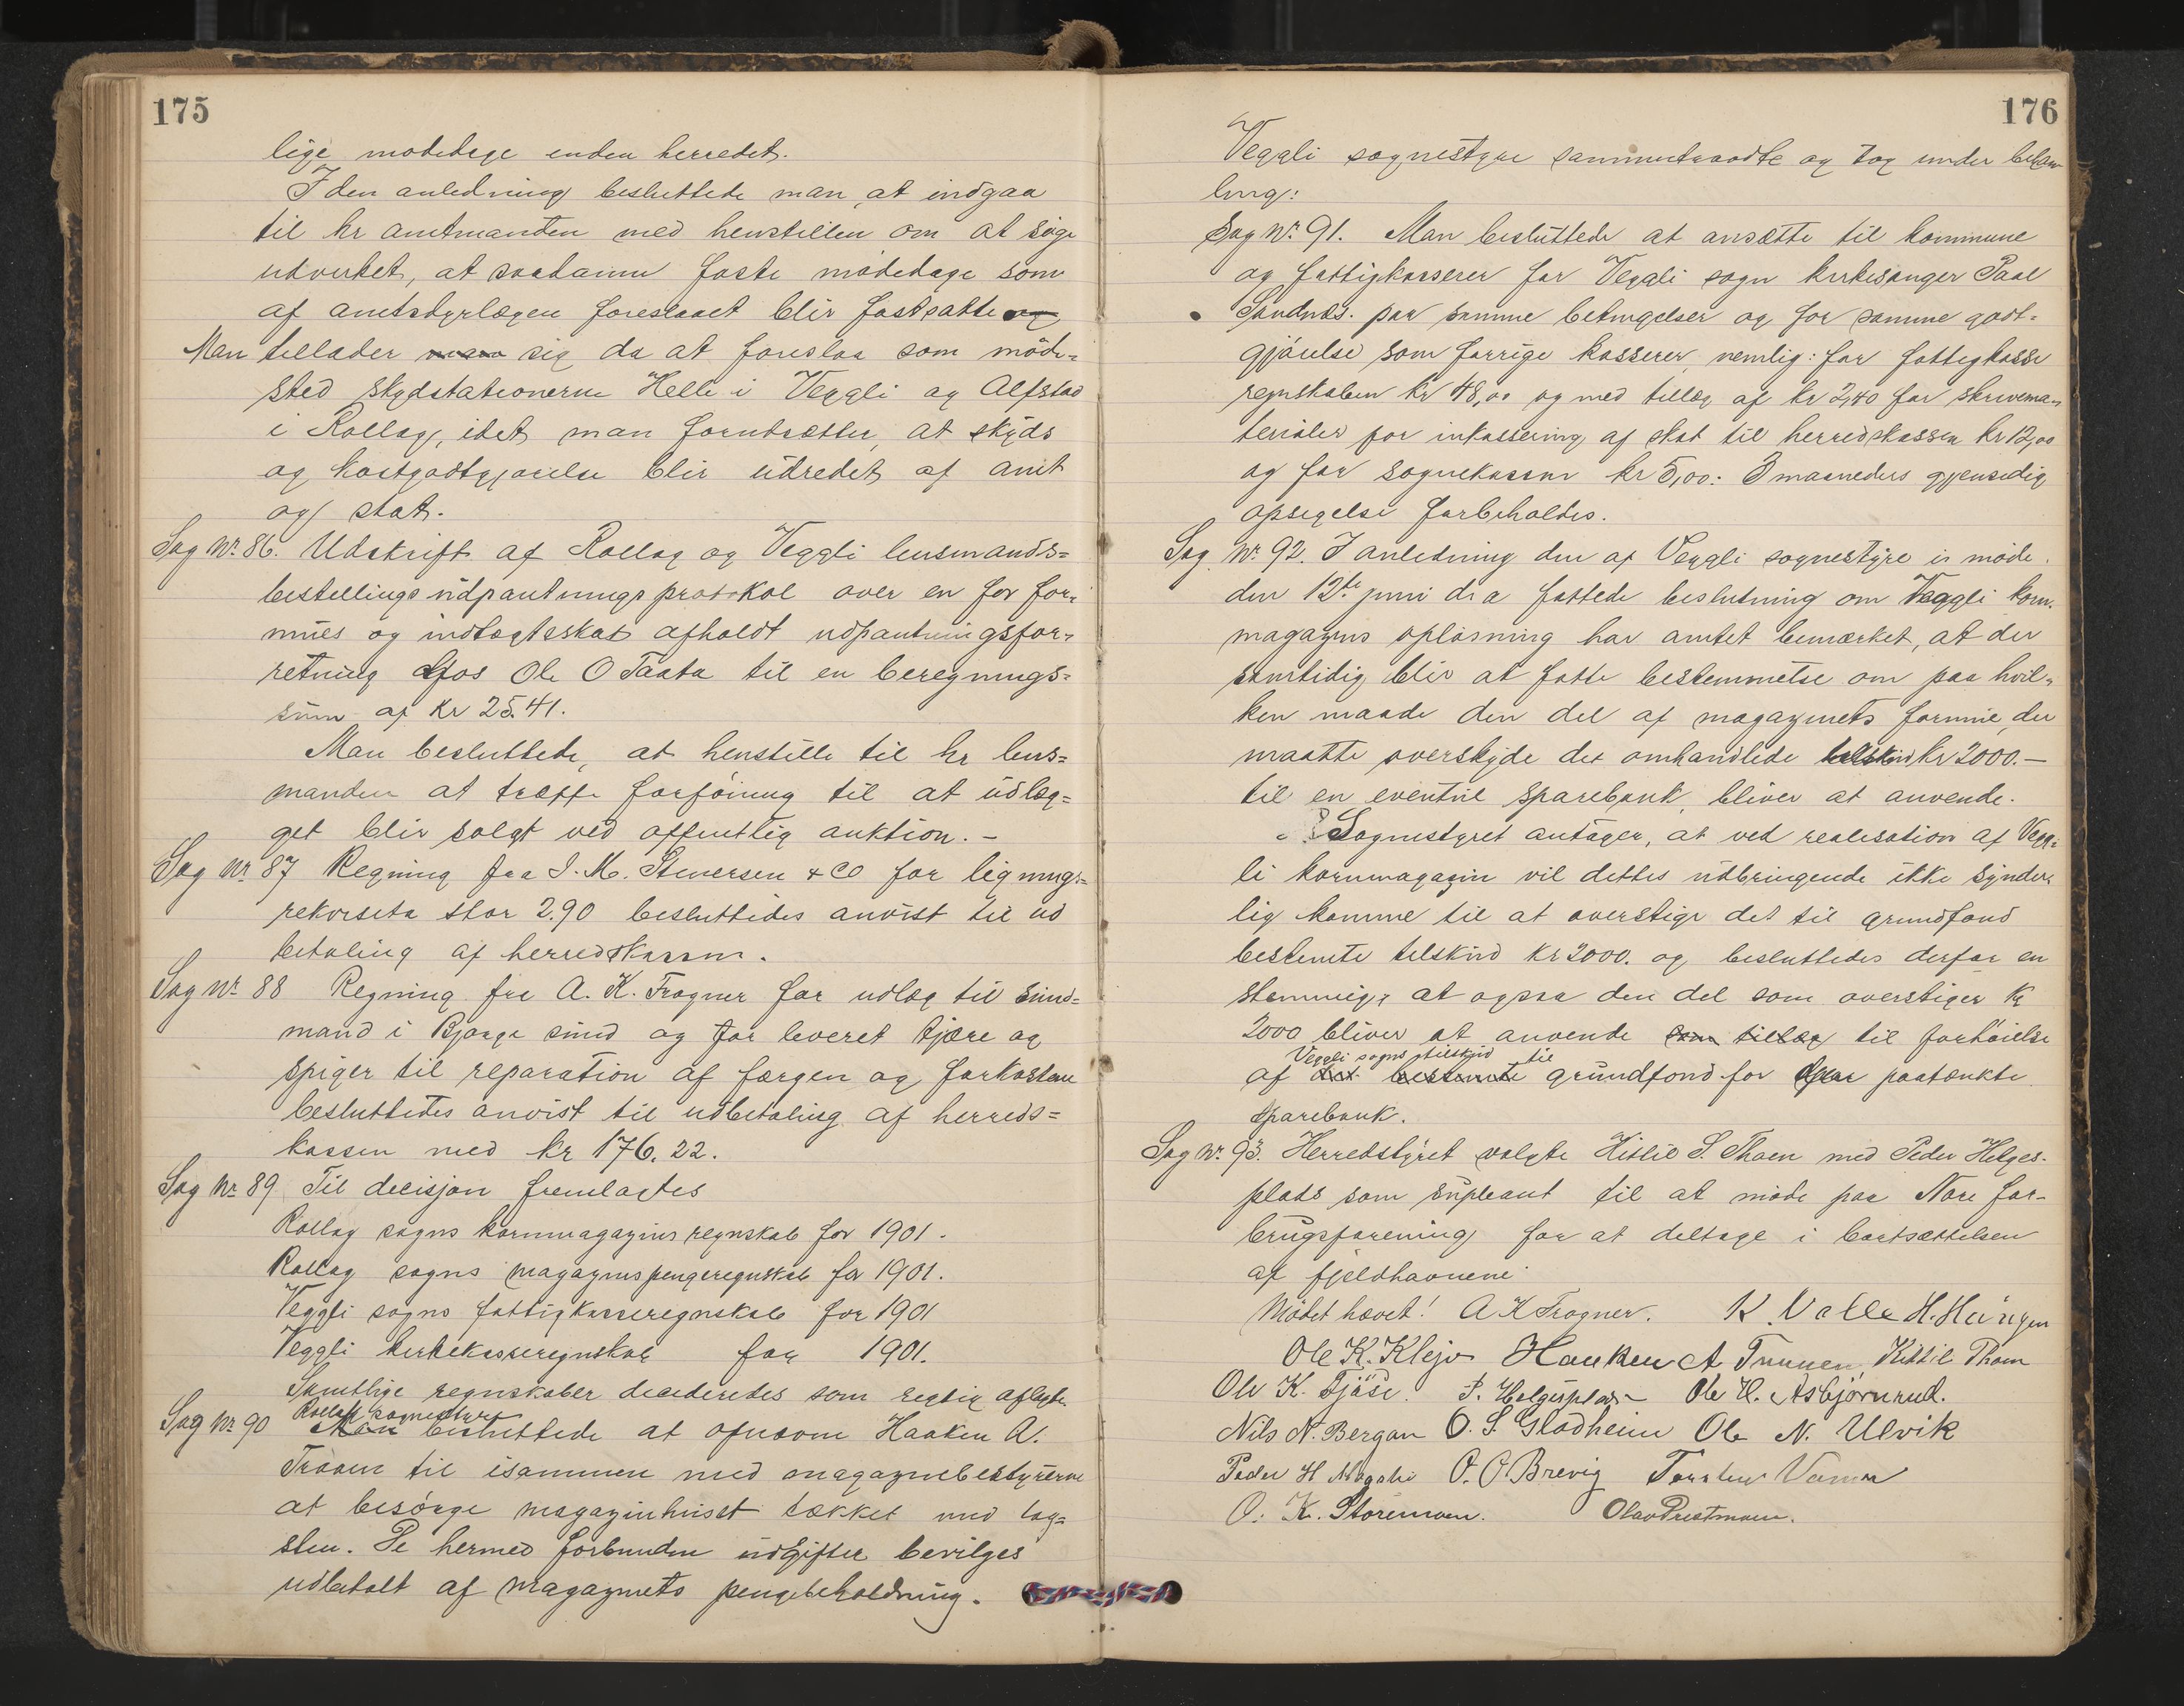 175
lige mødedage enden herredet.
I den anledning besluttede man at indgaa
til hr amtmanden med henstillen om at søge
udvirket, at saadanne faste mødedage som
af amtstyrlægen foreslaaet blir fastsatte og
Man tillader man sig da at foreslaa som møde=
sted skydstationerne Helle i Veggli og Alfstad
i Rollag, idet man forudsætter, at skyds
og kostgodtgjørelse blir udredet af amt
og stat.
Sag Nr. 86. Udskrift af Rollag og Veggli lensmands=
bestillings udpantningsprotokol over en for for=
mues og indtægtsskat afholdt udpantningsfor=
retning hos Ole O Taata til en beregnings=
sum af Kr 25.41.
Man besluttede, at henstille til hr lens=
manden at træffe forføining til at udlæg=
get blir solgt ved offentlig auktion. –
Sag Nr 87 Regning fra I. M. Stenersen & Co for lignings=
rekvisita stor 2.90 besluttedes anvist til ud
betaling af herredskassen.
Sag Nr. 88 Regning fra A. K. Frogner for udlæg til sund=
mand i Bjorge sund og for leveret tjære og
spiger til reparation af færgen og forkostan
besluttedes anvist til udbetaling af herreds=
kassen med kr 176.22.
Sag Nr. 89 Til decisjon fremlagtes
Rollag sogns kornmagazins regnskab for 1901.
Rollag sogns magazinspengeregnskab for 1901.
Veggli sogns fattigkasseregnskab for 1901
Veggli kirkekasseregnskab for 1901.
Samtlige regnskaber decideredes som rigtig aflagte.
Rollag sognestyre
Sag Nr. 90 Man besluttede at opnævne Haaken A.
Traaen til isammen med magazinbestyrerne
at besørge magazinhuset tækket med tag=
sten. De hermed forbundne udgifter bevilges
udbetalt af magazinets pengebeholdning.
176
Veggli sognestyre sammentraadte og tog under behand
ling:
Sag Nr. 91. Man besluttede at ansætte til kommune
og fattigkasserer for Veggli sogn kirkesanger Paal
Sandnæs. paa samme betingelser og for samme godt=
gjørelse som forrige kasserer, nemlig: for fattigkasse
regnskaben kr 48,00 og med tillæg af kr 2,40 for skrivema=
terialer for inkassering af skat til herredskassen kr 12,00
og for sognekassen kr 5,00. 3 maaneders gjensidig
opsigelse forbeholdes.
Sag Nr. 92. I anledning den af Veggli sognestyre i møde
den 12te juni d. a fattede beslutning om Veggli korn=
magazins opløsning har amtet bemærket, at der
samtidig blir at fatte bestemmelse om paa hvil=
ken maade den del af magazinets formue, der
maatte overskyde det omhandlede tilskud kr 2000.—
til en eventuel sparebank, bliver at anvende.
Sognestyret antager, at ved realisation af Vegg=
li kornmagazin vil dettes udbringende ikke synder=
lig komme til at overstige det til grundfond
bestemte tilskud kr 2000. og besluttedes derfor en
stemmig, at ogsaa den del som overstiger kr
2000 bliver at anvende som tillæg til forhøielse
Veggli sogns tilskud til
af det bestemte grundfond for den paatænkte
sparebank.
Sag Nr. 93. Herredstyret valgte Kittil S. Thoen med Peder Helges=
plads som supleant til at møde paa Nore for=
brugsforening for at deltage i bortsættelsen
af fjeldhavnene
Mødet hævet! A K Frogner. K. Valle H. Haugen
Ole K. Klejv Haaken A Traaen Kittil Thoen
Ole K. Fjøse. P. Helgesplads Ole H. Asbjørnrud.
Nils N. Bergan O. S. Gladheim Ole N. Ulvik
Peder H O. O. Brevig
O. K. Storemoen. Olav Prestmoen.